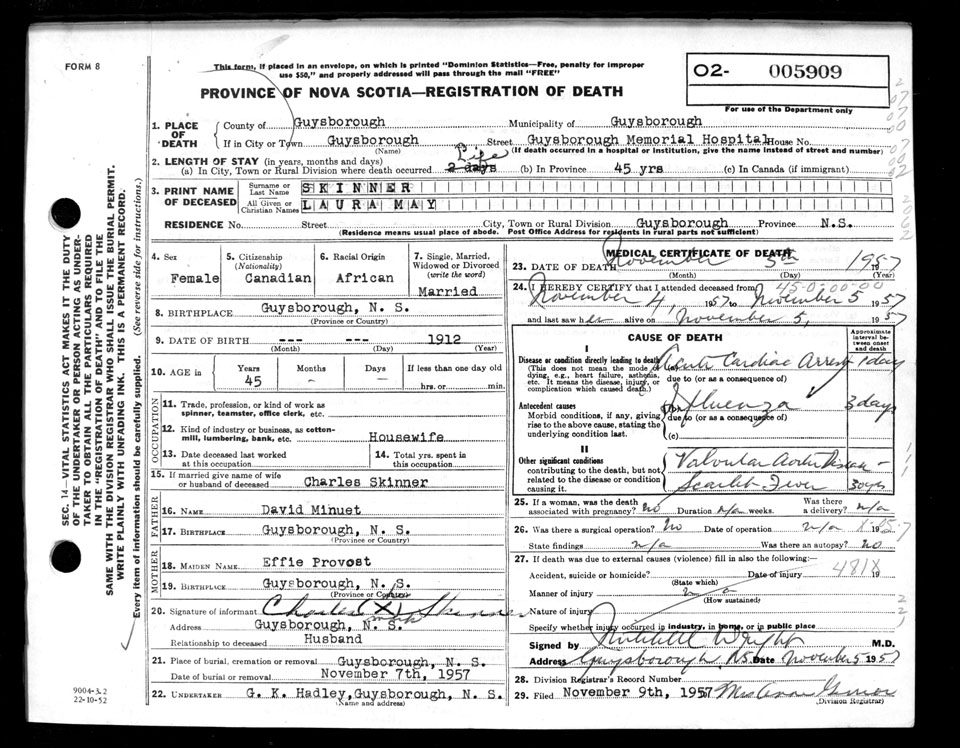 FORM 8
This form, if placed in an envelope, on which is printed "Dominion Statistics—Free, penalty for improper
use $50," and properly addressed will pass through the mail "FREE"
O2- 005909
For use of the Department only
PROVINCE OF NOVA SCOTIA—REGISTRATION OF DEATH
1. PLACE OF DEATH
County of Guysborough Municipality of Guysborough
If in City or Town Guysborough Street Guysborough Memorial Hospital House No.
(Name) (If death occurred in a hospital or institution, give the name instead of street and number)
2. LENGTH OF STAY (in years, months and days) Life
(a) In City, Town or Rural Division where death occurred 2 days (b) In Province 45 yrs (c) In Canada (if immigrant)
3. PRINT NAME OF DECEASED
Surname or Last Name SKINNER
All Given or Christian Names LAURA MAY
RESIDENCE No. Street City, Town or Rural Division Guysborough Province N.S.
(Residence means usual place of abode. Post Office Address for residents in rural parts not sufficient)
4. Sex Female
5. Citizenship (Nationality) Canadian
6. Racial Origin African
7. Single, Married, Widowed or Divorced (write the word) Married
8. BIRTHPLACE Guysborough, N. S.
(Province or Country)
9. DATE OF BIRTH --- --- 1912
(Month) (Day) (Year)
10. AGE in Years Months Days If less than one day old
45 – — hrs. or min.
OCCUPATION
11. Trade, profession, or kind of work as
spinner, teamster, office clerk, etc.
12. Kind of industry or business, as cotton-
mill, lumbering, bank, etc. Housewife
13. Date deceased last worked at this occupation
14. Total yrs. spent in this occupation
15. If married give name of wife
or husband of deceased Charles Skinner
FATHER
16. NAME David Minuet
17. BIRTHPLACE Guysborough, N. S.
(Province or Country)
MOTHER
18. MAIDEN NAME Effie Provost
19. BIRTHPLACE Guysborough, N. S.
(Province or Country)
20. Signature of informant Charles (X) Skinner
mark
Address Guysborough, N. S.
Relationship to deceased Husband
21. Place of burial, cremation or removal Guysborough, N. S.
Date of burial or removal November 7th, 1957
22. UNDERTAKER G. K. Hadley, Guysborough, N. S.
(Name and address)
MEDICAL CERTIFICATE OF DEATH
23. DATE OF DEATH November 5th 1957
(Month) (Day) (Year)
45-0-00-00
24. I HEREBY CERTIFY that I attended deceased from
November 4, 1957 to November 5 1957
and last saw her alive on November 5, 1957
CAUSE OF DEATH
Approximate interval between onset and death
I
Disease or condition directly leading to death
(This does not mean the mode of dying, e.g., heart failure, asthenia, etc. It means the disease, injury, or complication which caused death.)
Acute Cardiac Arrest 1 day
due to (or as a consequence of)
Antecedent causes
Morbid conditions, if any, giving rise to the above cause, stating the underlying condition last.
Influenza 3 days
due to (or as a consequence of)
(c)
II
Other significant conditions
contributing to the death, but not related to the disease or condition causing it.
Valvular Aortic Disease –
Scarlet Fever 30 yrs
25. If a woman, was the death associated with pregnancy? no Duration n/a weeks. Was there a delivery? n/a
26. Was there a surgical operation? No Date of operation n/a 19
State findings n/a Was there an autopsy? No
27. If death was due to external causes (violence) fill in also the following:—
Accident, suicide or homicide? Date of injury 19
(State which) 4818
Manner of injury
(How sustained)
Nature of injury
Specify whether injury occurred in industry, in home, or in public place
Signed by Mitchell Wright M.D.
Address Guysborough, N.S. Date November 5 1957
28. Division Registrar's Record Number
29. Filed November 9th, 1957 Mrs
(Division Registrar)
SEC. 14—VITAL STATISTICS ACT MAKES IT THE DUTY
OF THE UNDERTAKER OR PERSON ACTING AS UNDER-
TAKER TO OBTAIN ALL THE PARTICULARS REQUIRED
IN THE "REGISTRATION OF DEATH" AND TO FILE THE
SAME WITH THE DIVISION REGISTRAR WHO SHALL ISSUE THE BURIAL PERMIT.
WRITE PLAINLY WITH UNFADING INK. THIS IS A PERMANENT RECORD.
Every item of information should be carefully supplied. (See reverse side for instructions.)
9004-3.2
22-10-52